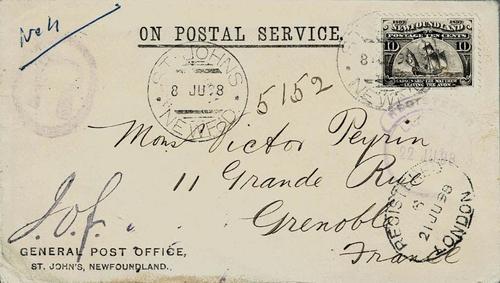 ON POSTAL SERVICE.
1497 NEWFOUNDLAND 1897
POSTAGE TEN CENTS
10 10
CABOT'S SHIP THE MATTHEW
LEAVING THE AVON
ST. JOHN'S
8 JU 98
NEWF'D
5152
Mons Victor Peyrin
11 Grande Rue
Grenoble
France
REGISTERED
21 JU 98
LONDON
GENERAL POST OFFICE,
ST. JOHN'S, NEWFOUNDLAND.